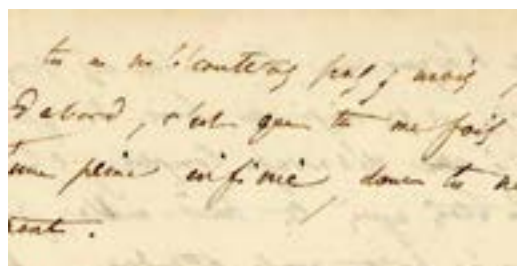 tu ne m'écouteras pas, mais
d'abord, c'est que tu me fais
une peine infinie, tu